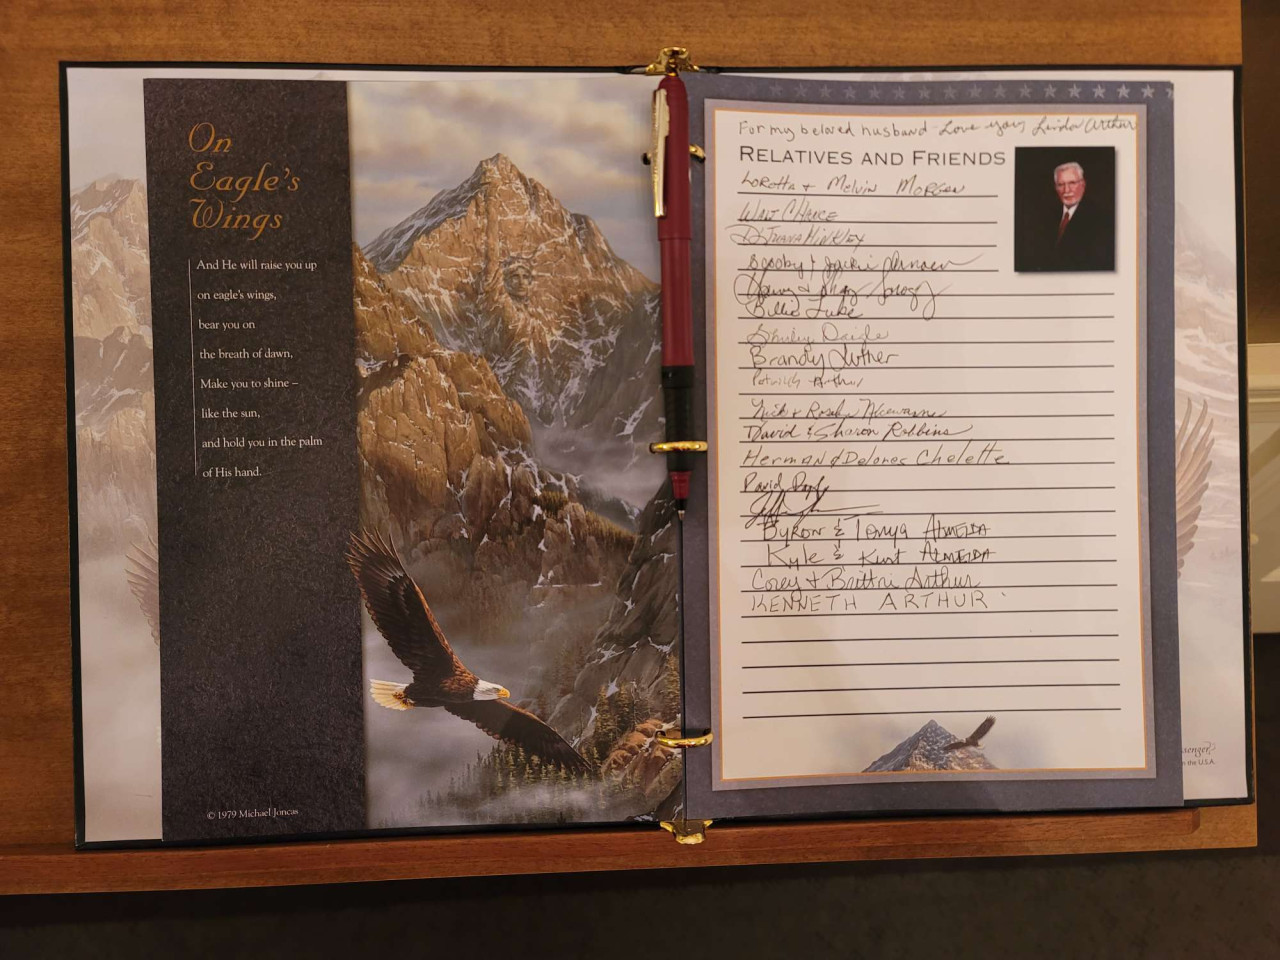 On
Eagle's
Wings
And He will raise you up
on eagle's wings,
bear you on
the breath of dawn,
Make you to shine –
like the sun,
and hold you in the palm
of His hand.
© 1979 Michael Joncas
For my beloved husband - Love you, Linda Arthur
RELATIVES AND FRIENDS
Loretta + Melvin Morgan
Walt Chance
Hinkley
Scooby + Jackie
Billie Luke
Shirley Daigle
Brandy Luther
Patrick Arthur
Nick + Rosalyn
David & Sharon Robbins
Herman & Delores Chelette
David
Byron & Tonya ALMEIDA
Kyle & Kurt ALMEIDA
Corey + Brittni Arthur
KENNETH ARTHUR
in the U.S.A.